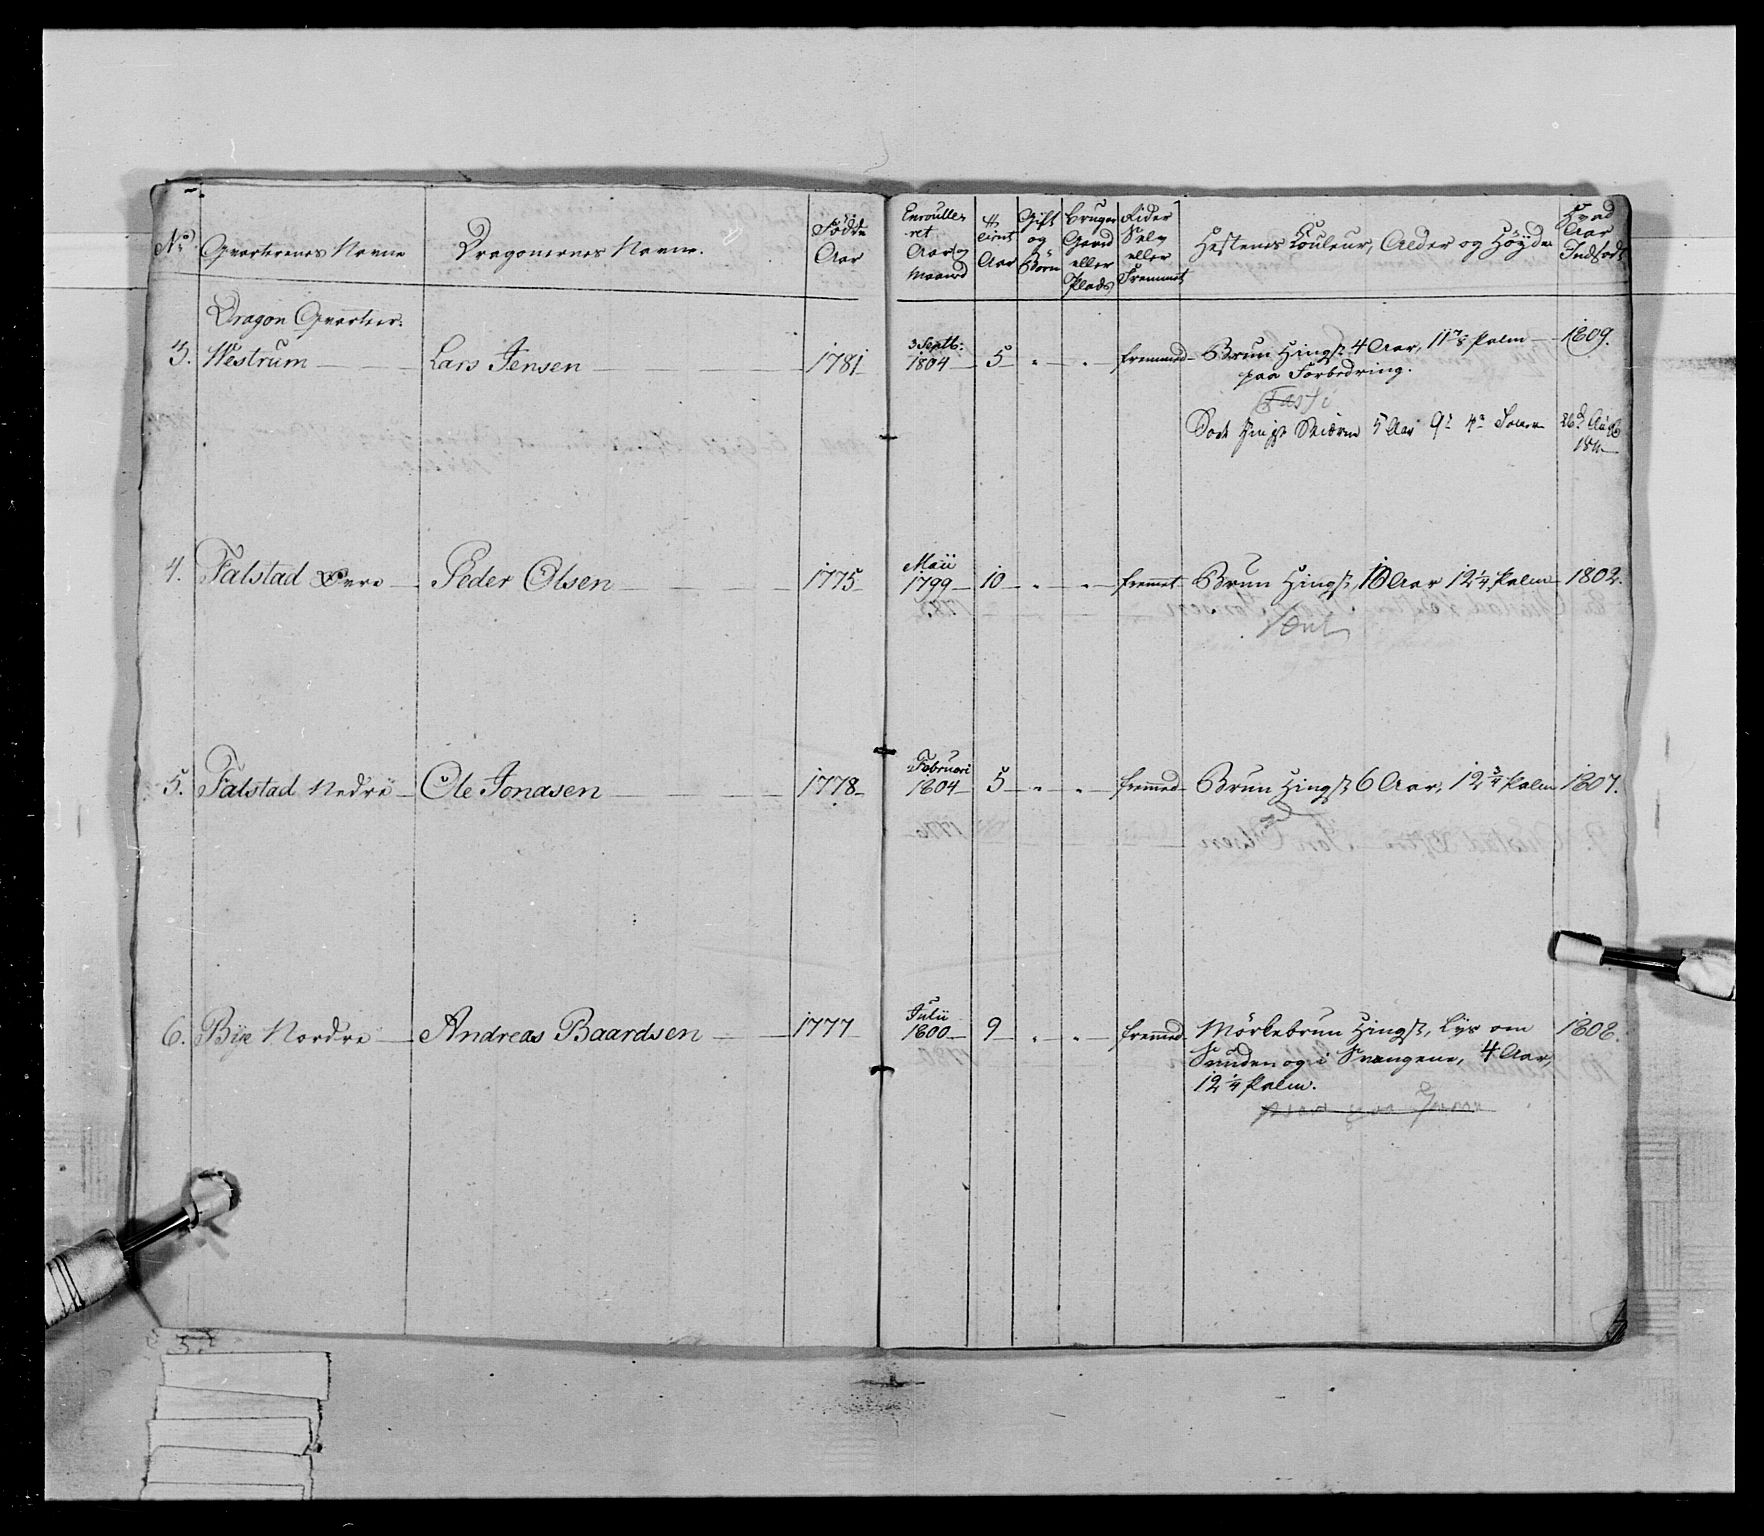 No
Qvarterenes Navne
Dragonernes Navne.
Födte
Aar
Enroulle-
ret
Aar og
Maaned
Tient
Aar
Gift
og
Börn
Bruger
Gaard
eller
Plads
Rider
Selv
eller
Fremmet
Hestenes Couleur, Alder og Höyde
Hvad
Aar
Indsadt
Dragon Qvarteer.
3. Westrum Lars Jensen 1781 3 Septb: 1804 5 " " fremmed Brun Hingst 4 Aar, 11 7/8 Palm 1809.
paa Forbedring.
Hingst 5 Aar 9
4. Falstad Övre Peder Olsen 1775 Maii 1799 10 " " fremet Brun Hingst, 10 Aar 12 1/4 Palm 1802.
5. Falstad Nedre Ole Jonasen 1778 Februari 1804 5 " " fremed Brun Hingst 6 Aar, 12 3/4 Palm 1807.
6. Bye Nordre Andreas Baardsen 1777 Julii 1800 9 " " fremed Mörkebrun Hingst, Lys om 1808.
Munden og i Svangene, 4 Aar,
12 1/4 Palm.